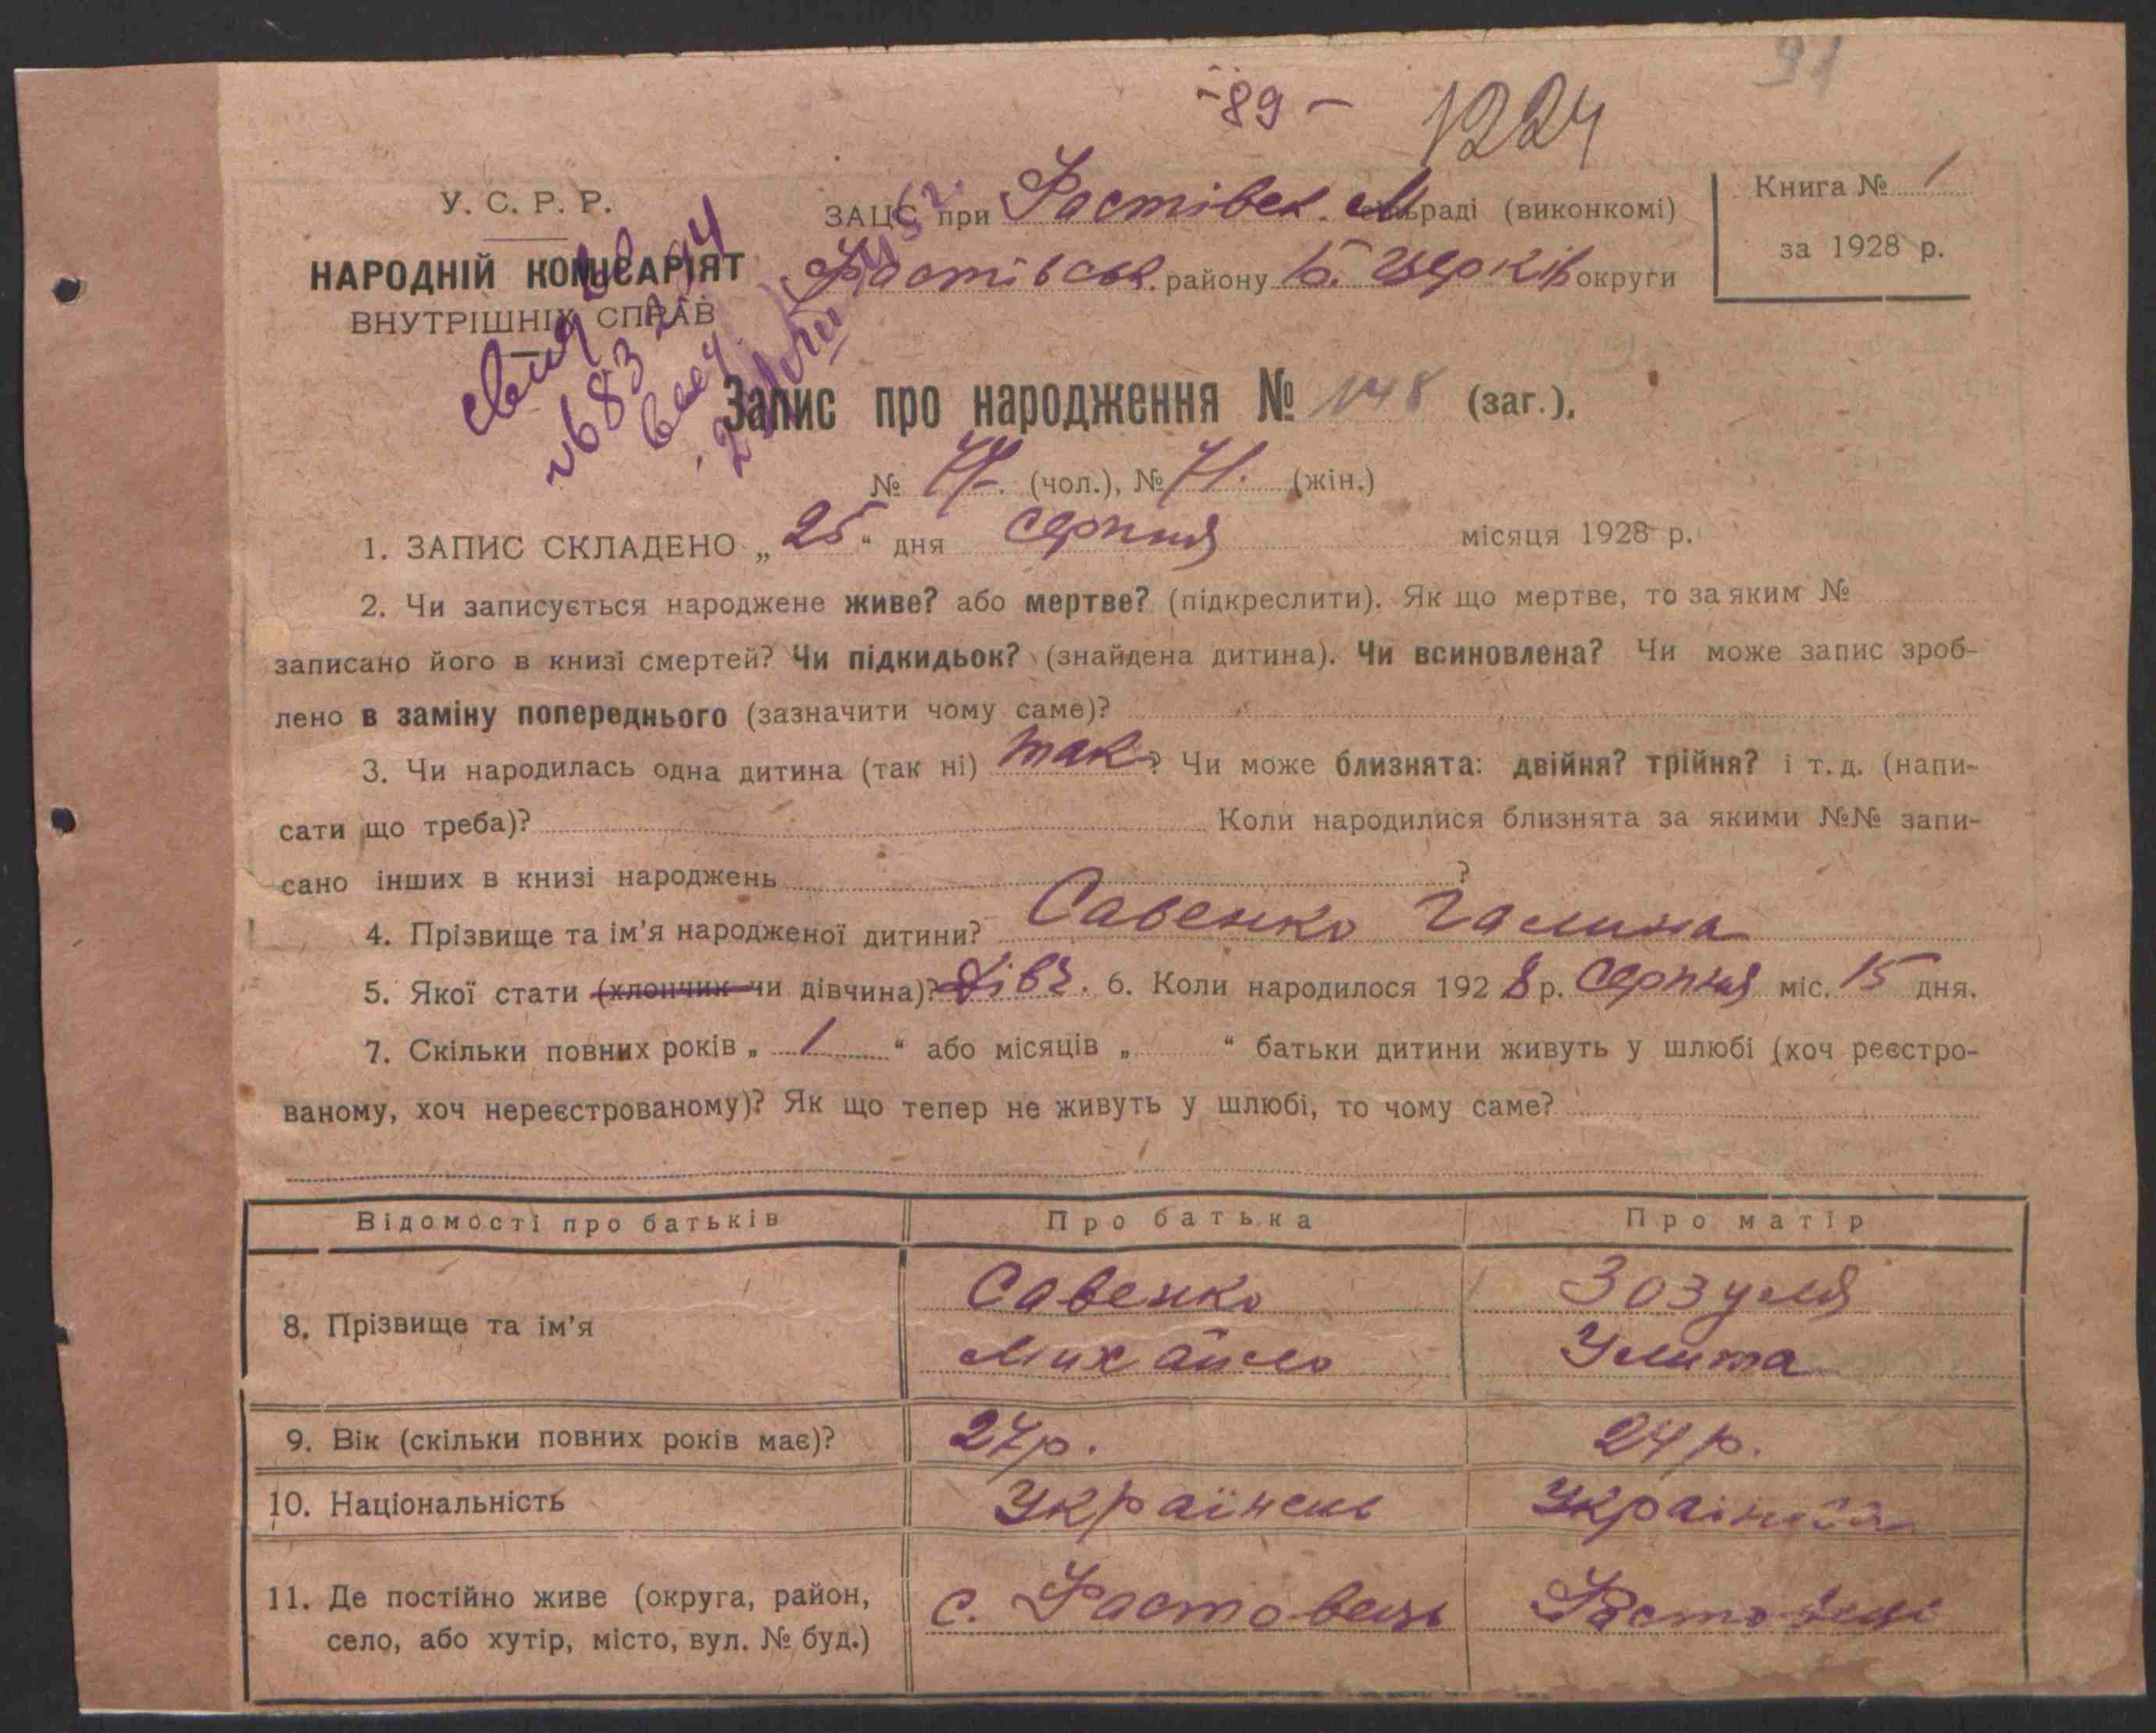 91
-89-
1224
У. С. Р. Р.
НАРОДНІЙ КОМІСАРІЯТ
ВНУТРІШНІХ СПРАВ
ЗАЦС при Фастівск. М раді (виконкомі)
Фастівськ. району Б. Церків округи
Книга № 1
за 1928 р.
Запис про народження № 148 (заг.),
№ 77. (чол.), № 71. (жін.)
1. ЗАПИС СКЛАДЕНО „ 25 “ дня серпня місяця 1928 р.
2. Чи записується народжене живе? або мертве? (підкреслити). Як що мертве, то за яким №
записано його в книзі смертей? Чи підкидьок? (знайдена дитина). Чи всиновлена? Чи може запис зроб-
лено в заміну попереднього (зазначити чому саме)?
3. Чи народилась одна дитина (так ні) так? Чи може близнята: двійня? трійня? і т. д. (напи-
сати що треба)? Коли народилися близнята за якими №№ запи-
сано інших в книзі народжень ?
4. Прізвище та ім’я народженої дитини? Савенко Галина
5. Якої стати (хлопчик чи дівчина)? Дівч. 6. Коли народилося 1928 р. Серпня міс. 15 дня.
7. Скільки повних років „ 1 “ або місяців „ “ батьки дитини живуть у шлюбі (хоч реєстро-
ваному, хоч нереєстрованому)? Як що тепер не живуть у шлюбі, то чому саме?
Відомості про батьків Про батька Про матір
8. Прізвище та ім’я
Савенко
Михайло
Зозуля
Улита
9. Вік (скільки повних років має)? 27 р. 24 р.
10. Національність Українець Українка
11. Де постійно живе (округа, район,
село, або хутір, місто, вул. № буд.)
с. Фастовець Фастовець